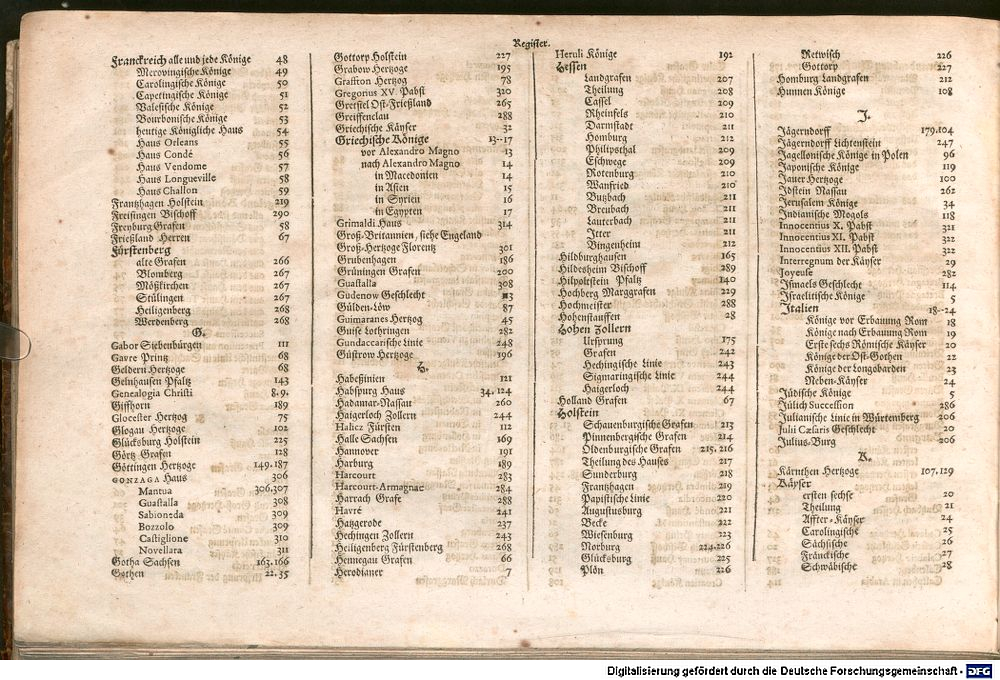 Register.
Franckreich alle und jede Könige 48
Merovingische Könige 49
Carolingische Könige 50
Capetingische Könige 51
Valesische Könige 52
Bourbonische Könige 53
heutige Königliche Haus 54
Haus Orleans 55
Haus Condé 56
Haus Vendome 57
Haus Longueville 58
Haus Challon 59
Frantzhagen Holstein 219
Freisingen Bischoff 290
Freyburg Grafen 58
Frießland Herren 67
Fürstenberg
alte Grafen 266
Blomberg 267
Mößkirchen 267
Stülingen 267
Heiligenberg 268
Werdenberg 268
G.
Gabor Siebenbürgen 111
Gavre Printz 68
Geldern Hertzoge 68
Gelnhausen Pfaltz 143
Genealogia Christi 8.9.
Giffhorn 189
Glocester Hertzog 75
Glogau Hertzoge 102
Glücksburg Holstein 225
Görtz Grafen 128
Göttingen Hertzoge 149.187
GONZAGA Haus 306
Mantua 306.307
Guastalla 308
Sabioneda 309
Bozzolo 309
Castiglione 310
Novellara 311
Gotha Sachsen 163.166
Gothen 22.35
Gottorp Holstein 227
Grabow Hertzoge 193
Graffton Hertzog 78
Gregorius XV. Pabst 320
Gretsiel Ost-Frießland 265
Greiffenclau 288
Griechische Käyser 32
Griechische Könige 13--17
vor Alexandro Magno 13
nach Alexandro Magno 14
in Macedonien 14
in Asien 15
in Syrien 16
in Egypten 17
Grimaldi Haus 314
Groß-Britannien, siehe Engeland
Groß-Hertzoge Florentz 301
Grubenhagen 186
Grüningen Grafen 200
Guastalla 308
Gudenow Geschlecht
Gülden-Löw 87
Guimaranes Hertzog 45
Guise Lothringen 282
Gundaccarische Linie 248
Güstrow Hertzoge 196
H.
Habeßinien 121
Habspurg Haus 34.124
Hadamar-Nassau 260
Haigerloch Zollern 244
Halicz Fürsten 112
Halle Sachsen 169
Hannover 191
Harburg 189
Harcourt 283
Harcourt-Armagnac 284
Harrach Grafe 288
Havré 241
Hatzgerode 237
Hechingen Zollern 243
Heiligenberg Fürstenberg 268
Hennegau Grafen 66
Herodianer 7
Heruli Könige 192
Hessen
Landgrafen 207
Theilung 208
Cassel 209
Rheinfels 210
Darmstadt 211
Homburg 212
Philipsthal 209
Eschwege 209
Rotenburg 210
Wanfried 210
Butzbach 211
Breubach 211
Lauterbach 211
Itter 211
Bingenheim 212
Hildburghausen 165
Hildesheim Bischoff 289
Hilpoltstein Pfaltz 140
Hochberg Marggrafen 229
Hochmeister 288
Hohenstauffen 28
Hohen Zollern
Ursprung 175
Grafen 242
Hechingische Linie 243
Sigmaringische Linie 244
Haigerloch 244
Holland Grafen 67
Holstein
Schauenburgische Grafen 213
Pinnenbergische Grafen 214
Oldenburgische Grafen 215.216
Theilung des Hauses 217
Sunderburg 218
Frantzhagen 219
Papistische Linie 220
Augustusburg 221
Becke 222
Wiesenburg 223
Norburg 224.226
Glücksburg 225
Plön 226
Retwisch 226
Gottorp 227
Homburg Landgrafen 212
Hunnen Könige 108
J.
Jägerndorff 179.104
Jägerndorff Lichtenstein 247
Jagellonische Könige in Polen 96
Japonische Könige 119
Jauer Hertzoge 100
Idstein Nassau 262
Jerusalem Könige 34
Indianische Mogols 118
Innocentius X. Pabst 321
Innocentius XI. Pabst 322
Innocentius XII. Pabst 322
Interregnum der Käyser 29
Joyeuse 282
Ismaels Geschlecht 114
Israelitische Könige 5
Italien 18--24
Könige vor Erbauung Rom 18
Könige nach Erbauung Rom 19
Erste sechs Römische Käyser 20
Könige der Ost-Gothen 22
Könige der Longobarden 23
Neben-Käyser 24
Jüdische Könige 5
Jülich Succession 286
Julianische Linie in Würtemberg 206
Julii Cæsaris Geschlecht 20
Julius-Burg 206
K.
Kärnthen Hertzoge 107.129
Käyser
ersten sechse 20
Theilung 21
Affter-Käyser 24
Carolingische 25
Sächsische 26
Fränckische 27
Schwäbische 28
Digitalisierung gefördert durch die Deutsche Forschungsgemeinschaft - DFG